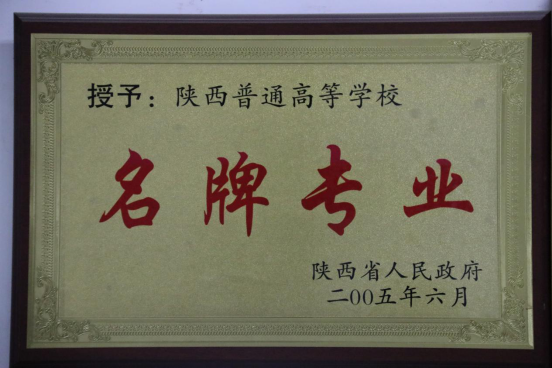 授予：陕西普通高等学校
名牌专业
陕西省人民政府
二00五年六月